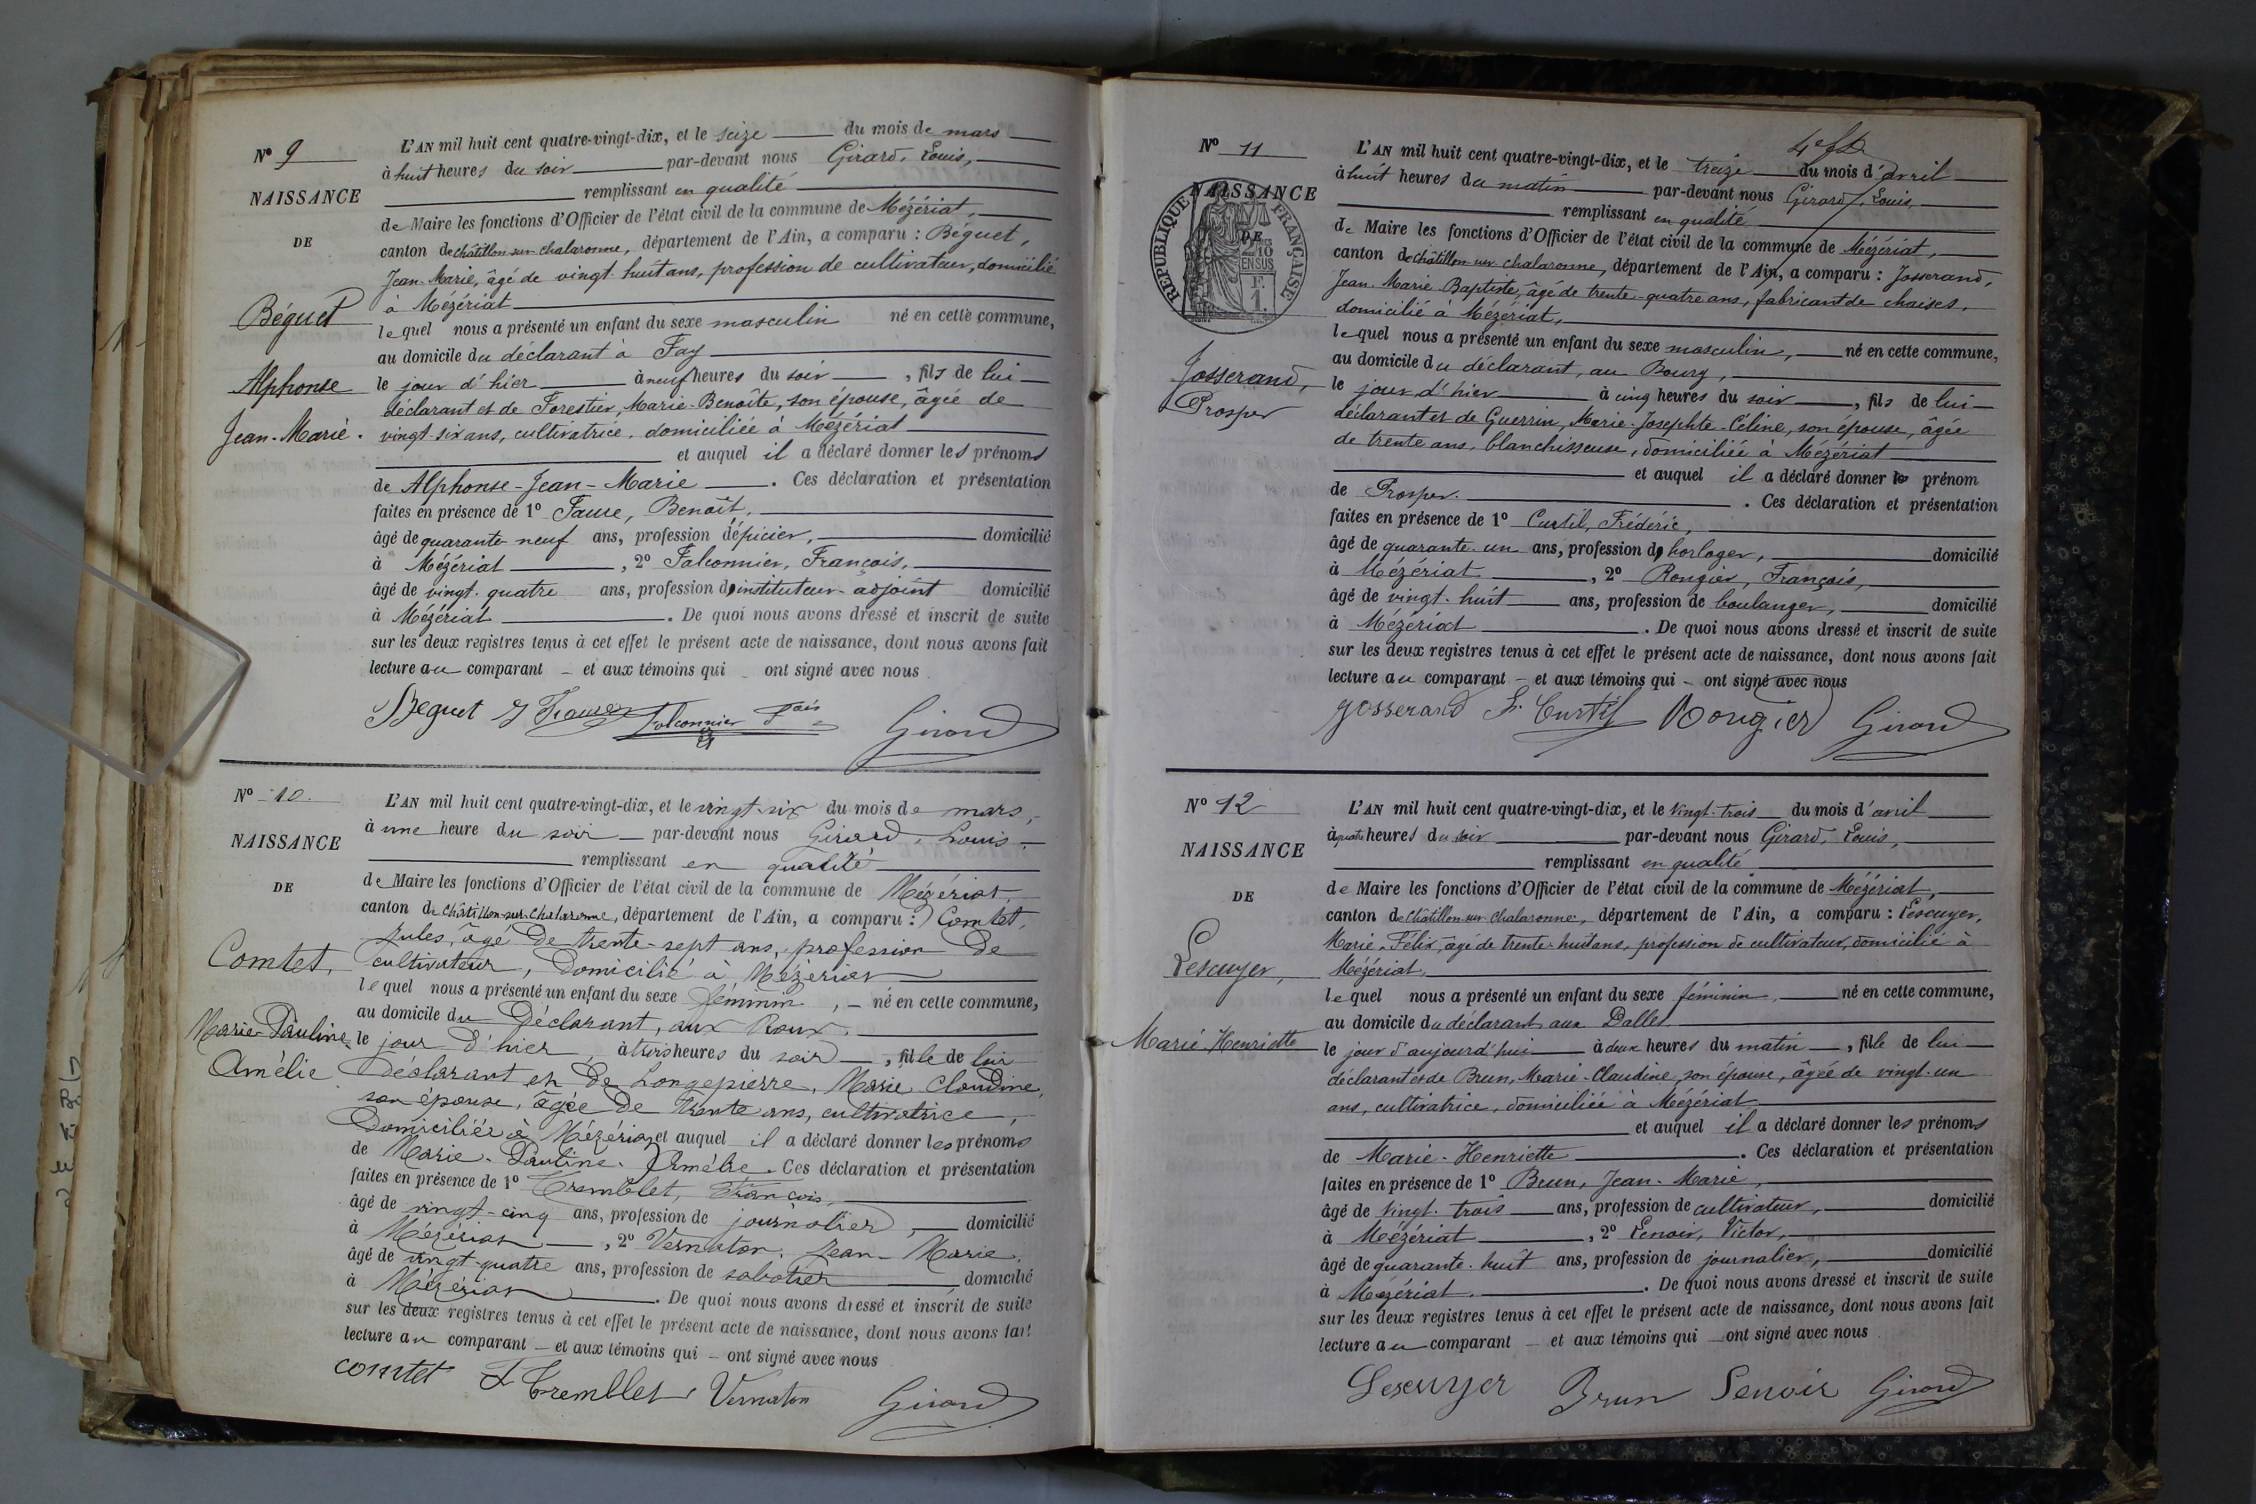 N° 9
NAISSANCE
DE
Béguet
Alphonse
Jean-Marie.
L'AN mil huit cent quatre-vingt-dix, et le seize du mois de mars
à huit heures du soir par-devant nous Girard, Louis,
remplissant en qualité
de Maire les fonctions d'Officier de l'état civil de la commune de Mézériat,
canton de Châtillon sur Chalaronne, département de l'Ain, a comparu : Béguet,
Jean-Marie, âgé de vingt huit ans, profession de cultivateur, domicilié
à Mézériat
lequel nous a présenté un enfant du sexe masculin né en cette commune,
au domicile du déclarant à Fay
le jour d'hier à neuf heures du soir , fils de lui
déclarant et de Forestier, Marie-Benoîte, son épouse, âgée de
vingt-six ans, cultivatrice, domiciliée à Mézériat
et auquel il a déclaré donner les prénoms
de Alphonse-Jean-Marie . Ces déclaration et présentation
faites en présence de 1° Faure, Benoît,
âgé de quarante-neuf ans, profession d'épicier, domicilié
à Mézériat , 2° Falconnier, François,
âgé de vingt-quatre ans, profession d'instituteur-adjoint domicilié
à Mézériat . De quoi nous avons dressé et inscrit de suite
sur les deux registres tenus à cet effet le présent acte de naissance, dont nous avons fait
lecture au comparant – et aux témoins qui – ont signé avec nous
Beguet Falconnier Fois Girard
N° 10.
NAISSANCE
DE
Comtet,
Marie-Pauline
Amélie
L'AN mil huit cent quatre-vingt-dix, et le vingt-six du mois de mars,
à une heure du soir par-devant nous Girard, Louis,
remplissant en qualité
de Maire les fonctions d'Officier de l'état civil de la commune de Mézériat,
canton de Châtillon-sur-Chalaronne, département de l'Ain, a comparu : Comtet,
Jules, âgé de trente-sept ans, profession de
cultivateur, domicilié à Mézériat
lequel nous a présenté un enfant du sexe féminin , – né en cette commune,
au domicile du déclarant, aux Roux,
le jour d'hier, à trois heures du soir , fille de lui
déclarant et de Longepierre, Marie Claudine,
son épouse, âgée de trente ans, cultivatrice,
domiciliée à Mézériat et auquel il a déclaré donner les prénoms
de Marie-Pauline-Amélie . Ces déclaration et présentation
faites en présence de 1° Tremblet, François,
âgé de vingt-cinq ans, profession de journalier, domicilié
à Mézériat , 2° Vernaton, Jean-Marie,
âgé de vingt-quatre ans, profession de sabotier domicilié
à Mézériat . De quoi nous avons dressé et inscrit de suite
sur les deux registres tenus à cet effet le présent acte de naissance, dont nous avons fait
lecture au comparant – et aux témoins qui – ont signé avec nous
comtet F Tremblet Vernaton Girard
N° 11
NAISSANCE
DE
RÉPUBLIQUE FRANÇAISE
2/10 EN SUS
F.
1.
Josserand,
Prosper
L'AN mil huit cent quatre-vingt-dix, et le treize du mois d'avril
à huit heures du matin par-devant nous Girard, Louis
remplissant en qualité
de Maire les fonctions d'Officier de l'état civil de la commune de Mézériat,
canton de Châtillon sur Chalaronne, département de l'Ain, a comparu : Josserand,
Jean-Marie-Baptiste, âgé de trente-quatre ans, fabricant de chaises,
domicilié à Mézériat,
lequel nous a présenté un enfant du sexe masculin, né en cette commune,
au domicile du déclarant, au Bourg,
le jour d'hier à cinq heures du soir , fils de lui
déclarant et de Guerrin, Marie-Josephte-Céline, son épouse, âgée
de trente ans, blanchisseuse, domiciliée à Mézériat
et auquel il a déclaré donner le prénom
de Prosper. . Ces déclaration et présentation
faites en présence de 1° Curtil, Frédéric,
âgé de quarante-un ans, profession d'horloger, domicilié
à Mézériat , 2° Rougier, François,
âgé de vingt-huit ans, profession de boulanger, domicilié
à Mézériat . De quoi nous avons dressé et inscrit de suite
sur les deux registres tenus à cet effet le présent acte de naissance, dont nous avons fait
lecture au comparant – et aux témoins qui – ont signé avec nous
Josserand F. Curtil Rougier Girard
N° 12
NAISSANCE
DE
Lescuyer,
Marie-Henriette
L'AN mil huit cent quatre-vingt-dix, et le vingt-trois du mois d'avril
à quatre heures du soir par-devant nous Girard, Louis,
remplissant en qualité
de Maire les fonctions d'Officier de l'état civil de la commune de Mézériat,
canton de Châtillon sur Chalaronne, département de l'Ain, a comparu : Lescuyer,
Marie-Félix, âgé de trente-huit ans, profession de cultivateur, domicilié à
Mézériat
lequel nous a présenté un enfant du sexe féminin, né en cette commune,
au domicile du déclarant aux Dallet
le jour d'aujourd'hui à deux heures du matin , fille de lui
déclarant et de Brun, Marie-Claudine, son épouse, âgée de vingt-un
ans, cultivatrice, domiciliée à Mézériat
et auquel il a déclaré donner les prénoms
de Marie-Henriette . Ces déclaration et présentation
faites en présence de 1° Brun, Jean-Marie,
âgé de vingt-trois ans, profession de cultivateur, domicilié
à Mézériat , 2° Lenoir, Victor,
âgé de quarante-huit ans, profession de journalier, domicilié
à Mézériat. . De quoi nous avons dressé et inscrit de suite
sur les deux registres tenus à cet effet le présent acte de naissance, dont nous avons fait
lecture au comparant – et aux témoins qui – ont signé avec nous
Lescuyer Brun Lenoir Girard